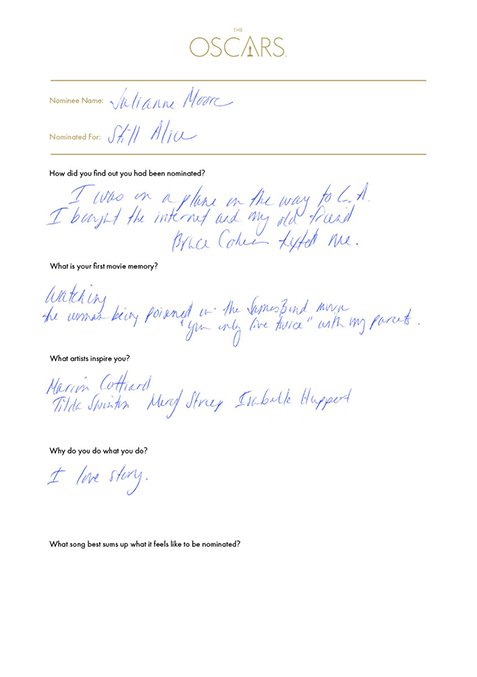 THE
OSCARS.
Nominee Name: Julianne Moore
Nominated For: Still Alice
How did you find out you had been nominated?
I was on a plane on the way to L.A.
I bought the internet and my old friend
Bruce Cohen texted me.
What is your first movie memory?
Watching
the woman being poisoned in the James Bond movie
"You only live twice" with my parents.
What artists inspire you?
Marion Cotillard
Tilda Swinton Meryl Streep Isabelle Huppert
Why do you do what you do?
I love story.
What song best sums up what it feels like to be nominated?